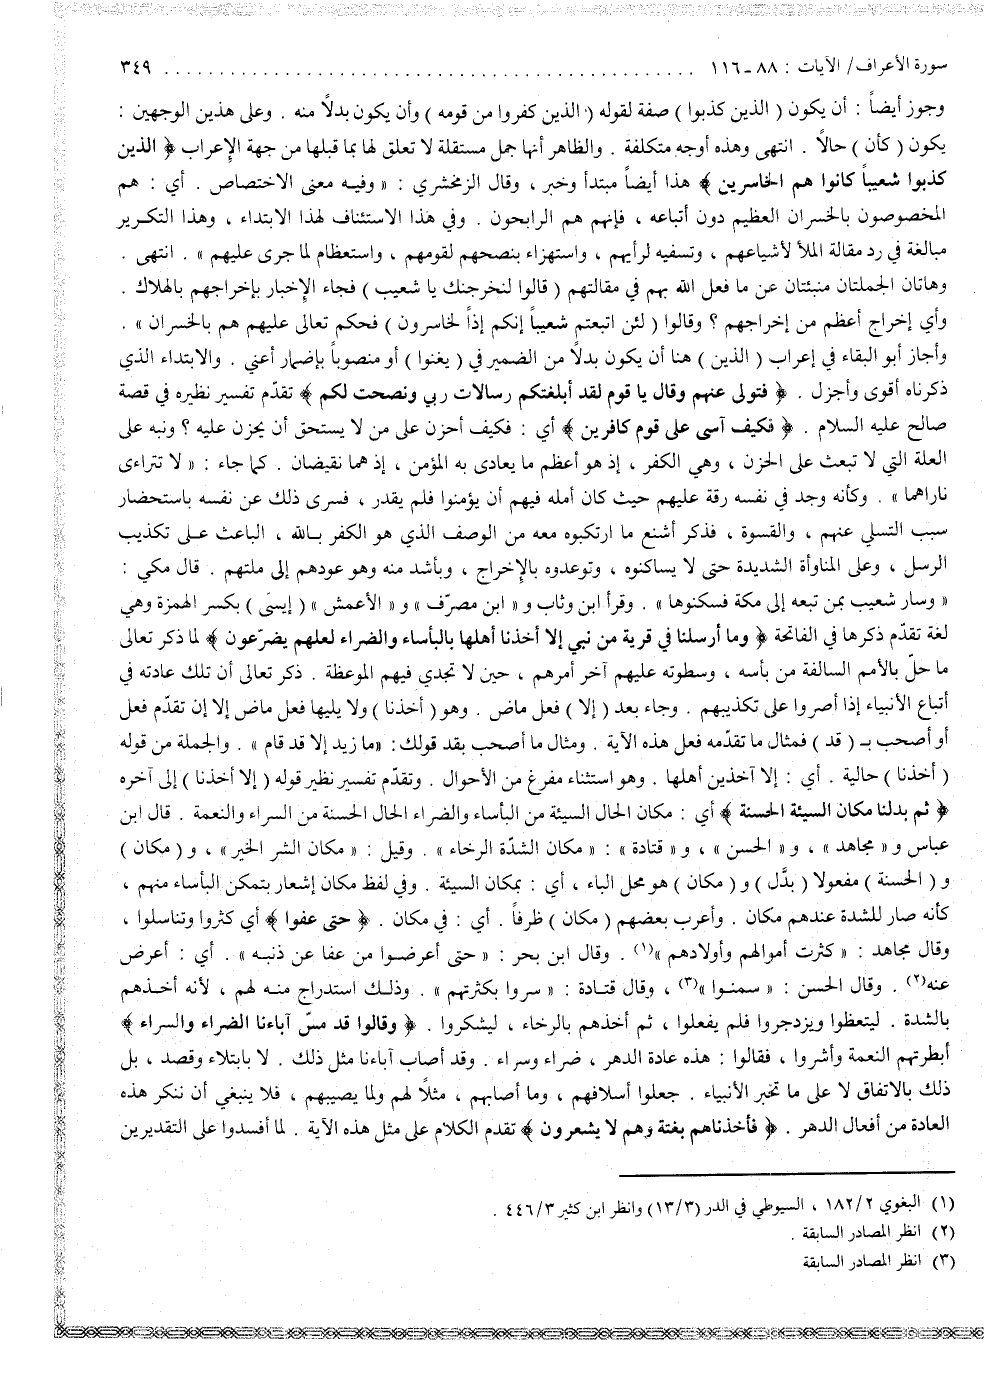 سورة الأعراف/ الآيات : ٨٨ ـ ١١٦ ........................................ ٣٤٩
وجوز أيضاً : أن يكون ( الذين كذبوا ) صفة لقوله ( الذين كفروا من قومه ) وأن يكون بدلاً منه . وعلى هذين الوجهين :
يكون ( كأن ) حالاً . انتهى وهذه أوجه متكلفة . والظاهر أنها جمل مستقلة لا تعلق لها بما قبلها من جهة الإعراب ﴿ الذين
كذبوا شعيباً كانوا هم الخاسرين ﴾ هذا أيضاً مبتدأ وخبر ، وقال الزمخشري : « وفيه معنى الاختصاص . أي : هم
المخصوصون بالخسران العظيم دون أتباعه ، فإنهم هم الرابحون . وفي هذا الاستئناف لهذا الابتداء ، وهذا التكرير
مبالغة في رد مقالة الملأ لأشياعهم ، وتسفيه لرأيهم ، واستهزاء بنصحهم لقومهم ، واستعظام لما جرى عليهم » . انتهى .
وهاتان الجملتان منبئتان عن ما فعل الله بهم في مقالتهم ( قالوا لنخرجنك يا شعيب ) فجاء الإخبار بإخراجهم بالهلاك .
وأي إخراج أعظم من إخراجهم ؟ وقالوا ( لئن اتبعتم شعيباً إنكم إذاً لخاسرون ) فحكم تعالى عليهم هم بالخسران » .
وأجاز أبو البقاء في إعراب ( الذين ) هنا أن يكون بدلاً من الضمير في ( يغنوا ) أو منصوباً بإضمار أعني . والابتداء الذي
ذكرناه أقوى وأجزل . ﴿ فتولى عنهم وقال يا قوم لقد أبلغتكم رسالات ربي ونصحت لكم ﴾ تقدّم تفسير نظيره في قصة
صالح عليه السلام . ﴿ فكيف آسى على قوم كافرين ﴾ أي : فكيف أحزن على من لا يستحق أن يحزن عليه ؟ ونبه على
العلة التي لا تبعث على الحزن ، وهي الكفر ، إذ هو أعظم ما يعادى به المؤمن ، إذ هما نقيضان . كما جاء : « لا تتراءى
ناراهما » . وكأنه وجد في نفسه رقة عليهم حيث كان أمله فيهم أن يؤمنوا فلم يقدر ، فسرى ذلك عن نفسه باستحضار
سبب التسلي عنهم ، والقسوة ، فذكر أشنع ما ارتكبوه معه من الوصف الذي هو الكفر بالله ، الباعث على تكذيب
الرسل ، وعلى المناوأة الشديدة حتى لا يساكنوه ، وتوعدوه بالإخراج ، وبأشد منه وهو عودهم إلى ملتهم . قال مكي :
« وسار شعيب بمن تبعه إلى مكة فسكنوها » . وقرأ ابن وثاب و« ابن مصرّف » و« الأعمش » ( إيسَى ) بكسر الهمزة وهي
لغة تقدّم ذكرها في الفاتحة ﴿ وما أرسلنا في قرية من نبي إلا أخذنا أهلها بالبأساء والضراء لعلهم يضرّعون ﴾ لما ذكر تعالى
ما حلّ بالأمم السالفة من بأسه ، وسطوته عليهم آخر أمرهم ، حين لا تجدي فيهم الموعظة . ذكر تعالى أن تلك عادته في
أتباع الأنبياء إذا أصروا على تكذيبهم . وجاء بعد ( إلا ) فعل ماض . وهو ( أخذنا ) ولا يليها فعل ماض إلا إن تقدّم فعل
أو أصحب بـ ( قد ) فمثال ما تقدّمه فعل هذه الآية . ومثال ما أصحب بقد قولك: «ما زيد إلا قد قام » . والجملة من قوله
( أخذنا ) حالية . أي : إلا آخذين أهلها . وهو استثناء مفرغ من الأحوال . وتقدّم تفسير نظير قوله ( إلا أخذنا ) إلى آخره
﴿ ثم بدلنا مكان السيئة الحسنة ﴾ أي : مكان الحال السيئة من البأساء والضراء الحال الحسنة من السراء والنعمة . قال ابن
عباس و« مجاهد » ، و« الحسن » ، و« قتادة » : « مكان الشدّة الرخاء » . وقيل : « مكان الشر الخير » ، و ( مكان )
و ( الحسنة ) مفعولا ( بدَّل ) و ( مكان ) هو محل الباء ، أي : بمكان السيئة . وفي لفظ مكان إشعار بتمكن البأساء منهم ،
كأنه صار للشدة عندهم مكان . وأعرب بعضهم ( مكان ) ظرفاً . أي : في مكان . ﴿ حتى عفوا ﴾ أي كثروا وتناسلوا ،
وقال مجاهد : « كثرت أموالهم وأولادهم »(١) . وقال ابن بحر : « حتى أعرضوا من عفا عن ذنبه » . أي : أعرض
عنه(٢) . وقال الحسن : « سمنوا »(٣) ، وقال قتادة : « سروا بكثرتهم » . وذلك استدراج منه لهم ، لأنه أخذهم
بالشدة . ليتعظوا ويزدجروا فلم يفعلوا ، ثم أخذهم بالرخاء ، ليشكروا . ﴿ وقالوا قد مسّ آباءنا الضراء والسراء ﴾
أبطرتهم النعمة وأشروا ، فقالوا : هذه عادة الدهر ، ضراء وسراء . وقد أصاب آباءنا مثل ذلك . لا بابتلاء وقصد ، بل
ذلك بالاتفاق لا على ما تخبر الأنبياء . جعلوا أسلافهم ، وما أصابهم ، مثلاً لهم ولما يصيبهم ، فلا ينبغي أن ننكر هذه
العادة من أفعال الدهر . ﴿ فأخذناهم بغتة وهم لا يشعرون ﴾ تقدم الكلام على مثل هذه الآية . لما أفسدوا على التقديرين
(١) البغوي ١٨٢/٢ ، السيوطي في الدر (١٣/٣) وانظر ابن كثير ٤٤٦/٣ .
(٢) انظر المصادر السابقة .
(٣) انظر المصادر السابقة